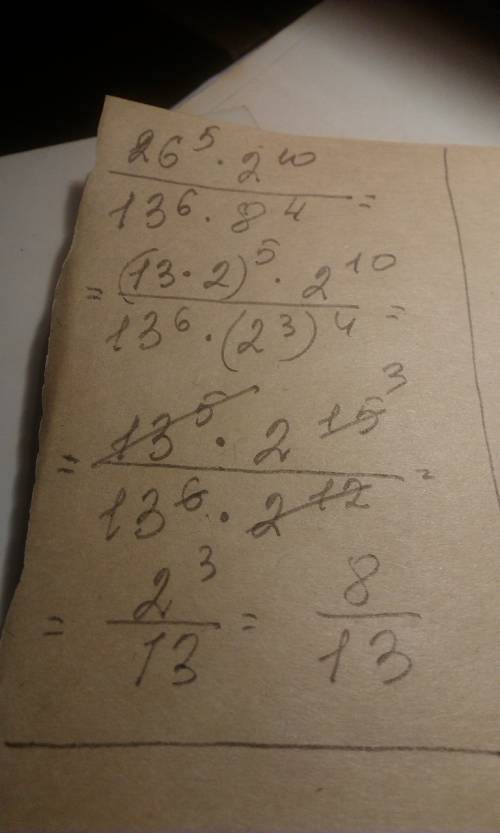 26⁵ · 2¹⁰
13⁶ · 8⁴ =
= (13 · 2)⁵ · 2¹⁰
13⁶ · (2³)⁴ =
= 13⁵ · 2¹⁵ ³
13⁶ · 2¹² =
= 2³ = 8
13 13